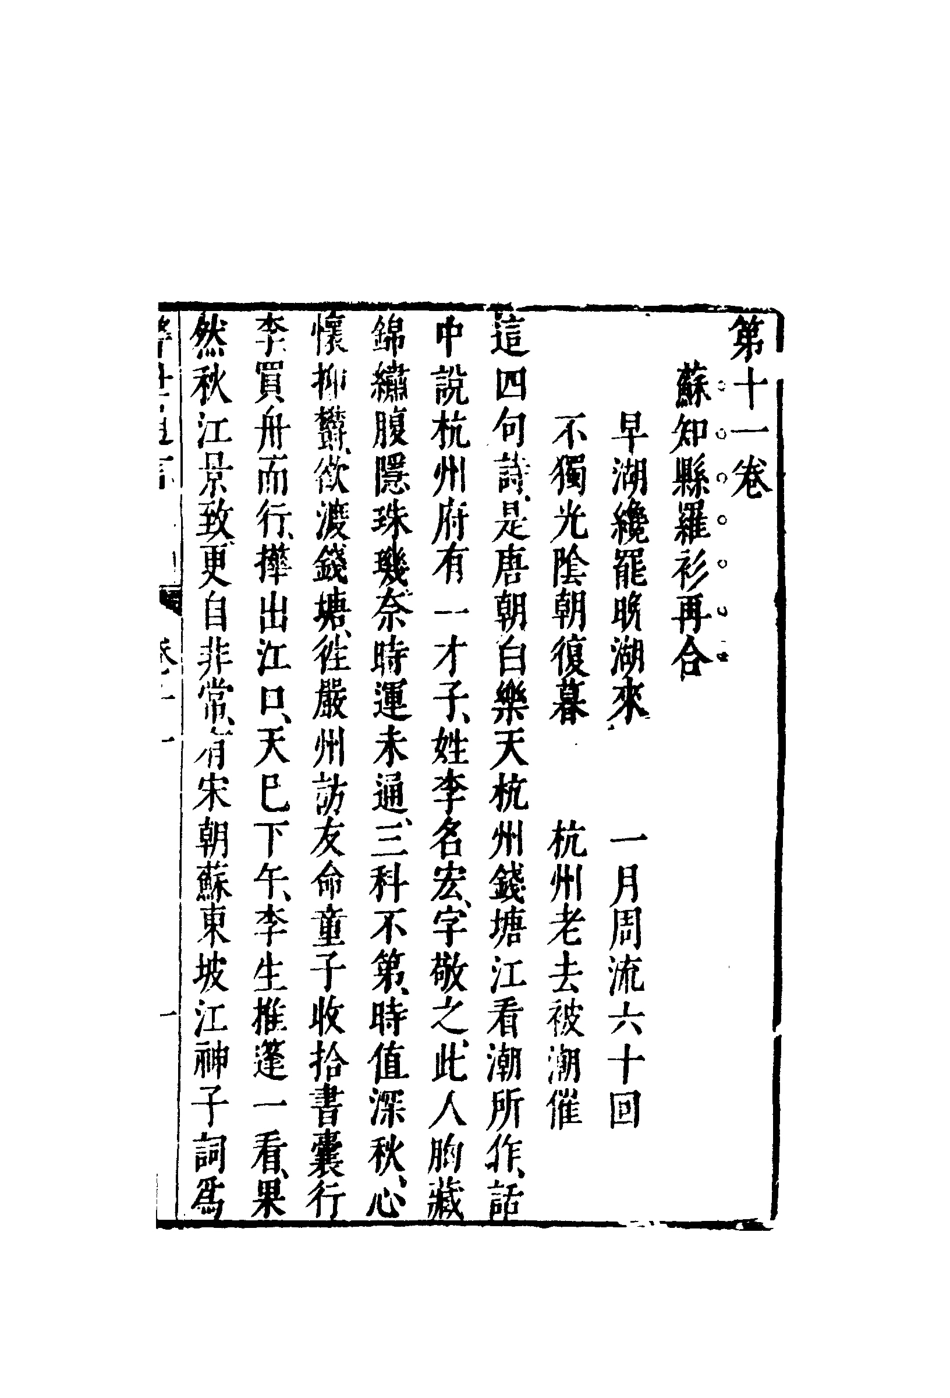 第十一卷
蘇知縣羅衫再合
早湖纔罷晚湖來　一月周流六十回
不獨光陰朝復暮　杭州老去被潮催
這四句詩、是唐朝白樂天杭州錢塘江看潮所作、話
中說杭州府有一才子、姓李名宏、字敬之、此人胸藏
錦繡腹隱珠璣、奈時運未通、三科不第、時值深秋、心
懷抑鬱、欲渡錢塘、往嚴州訪友命童子收拾書囊行
李、買舟而行、撶出江口、天巳下午、李生推蓬一看、果
然秋江景致、更自非常、有宋朝蘇東坡江神子詞爲
警世通言　卷十一　一